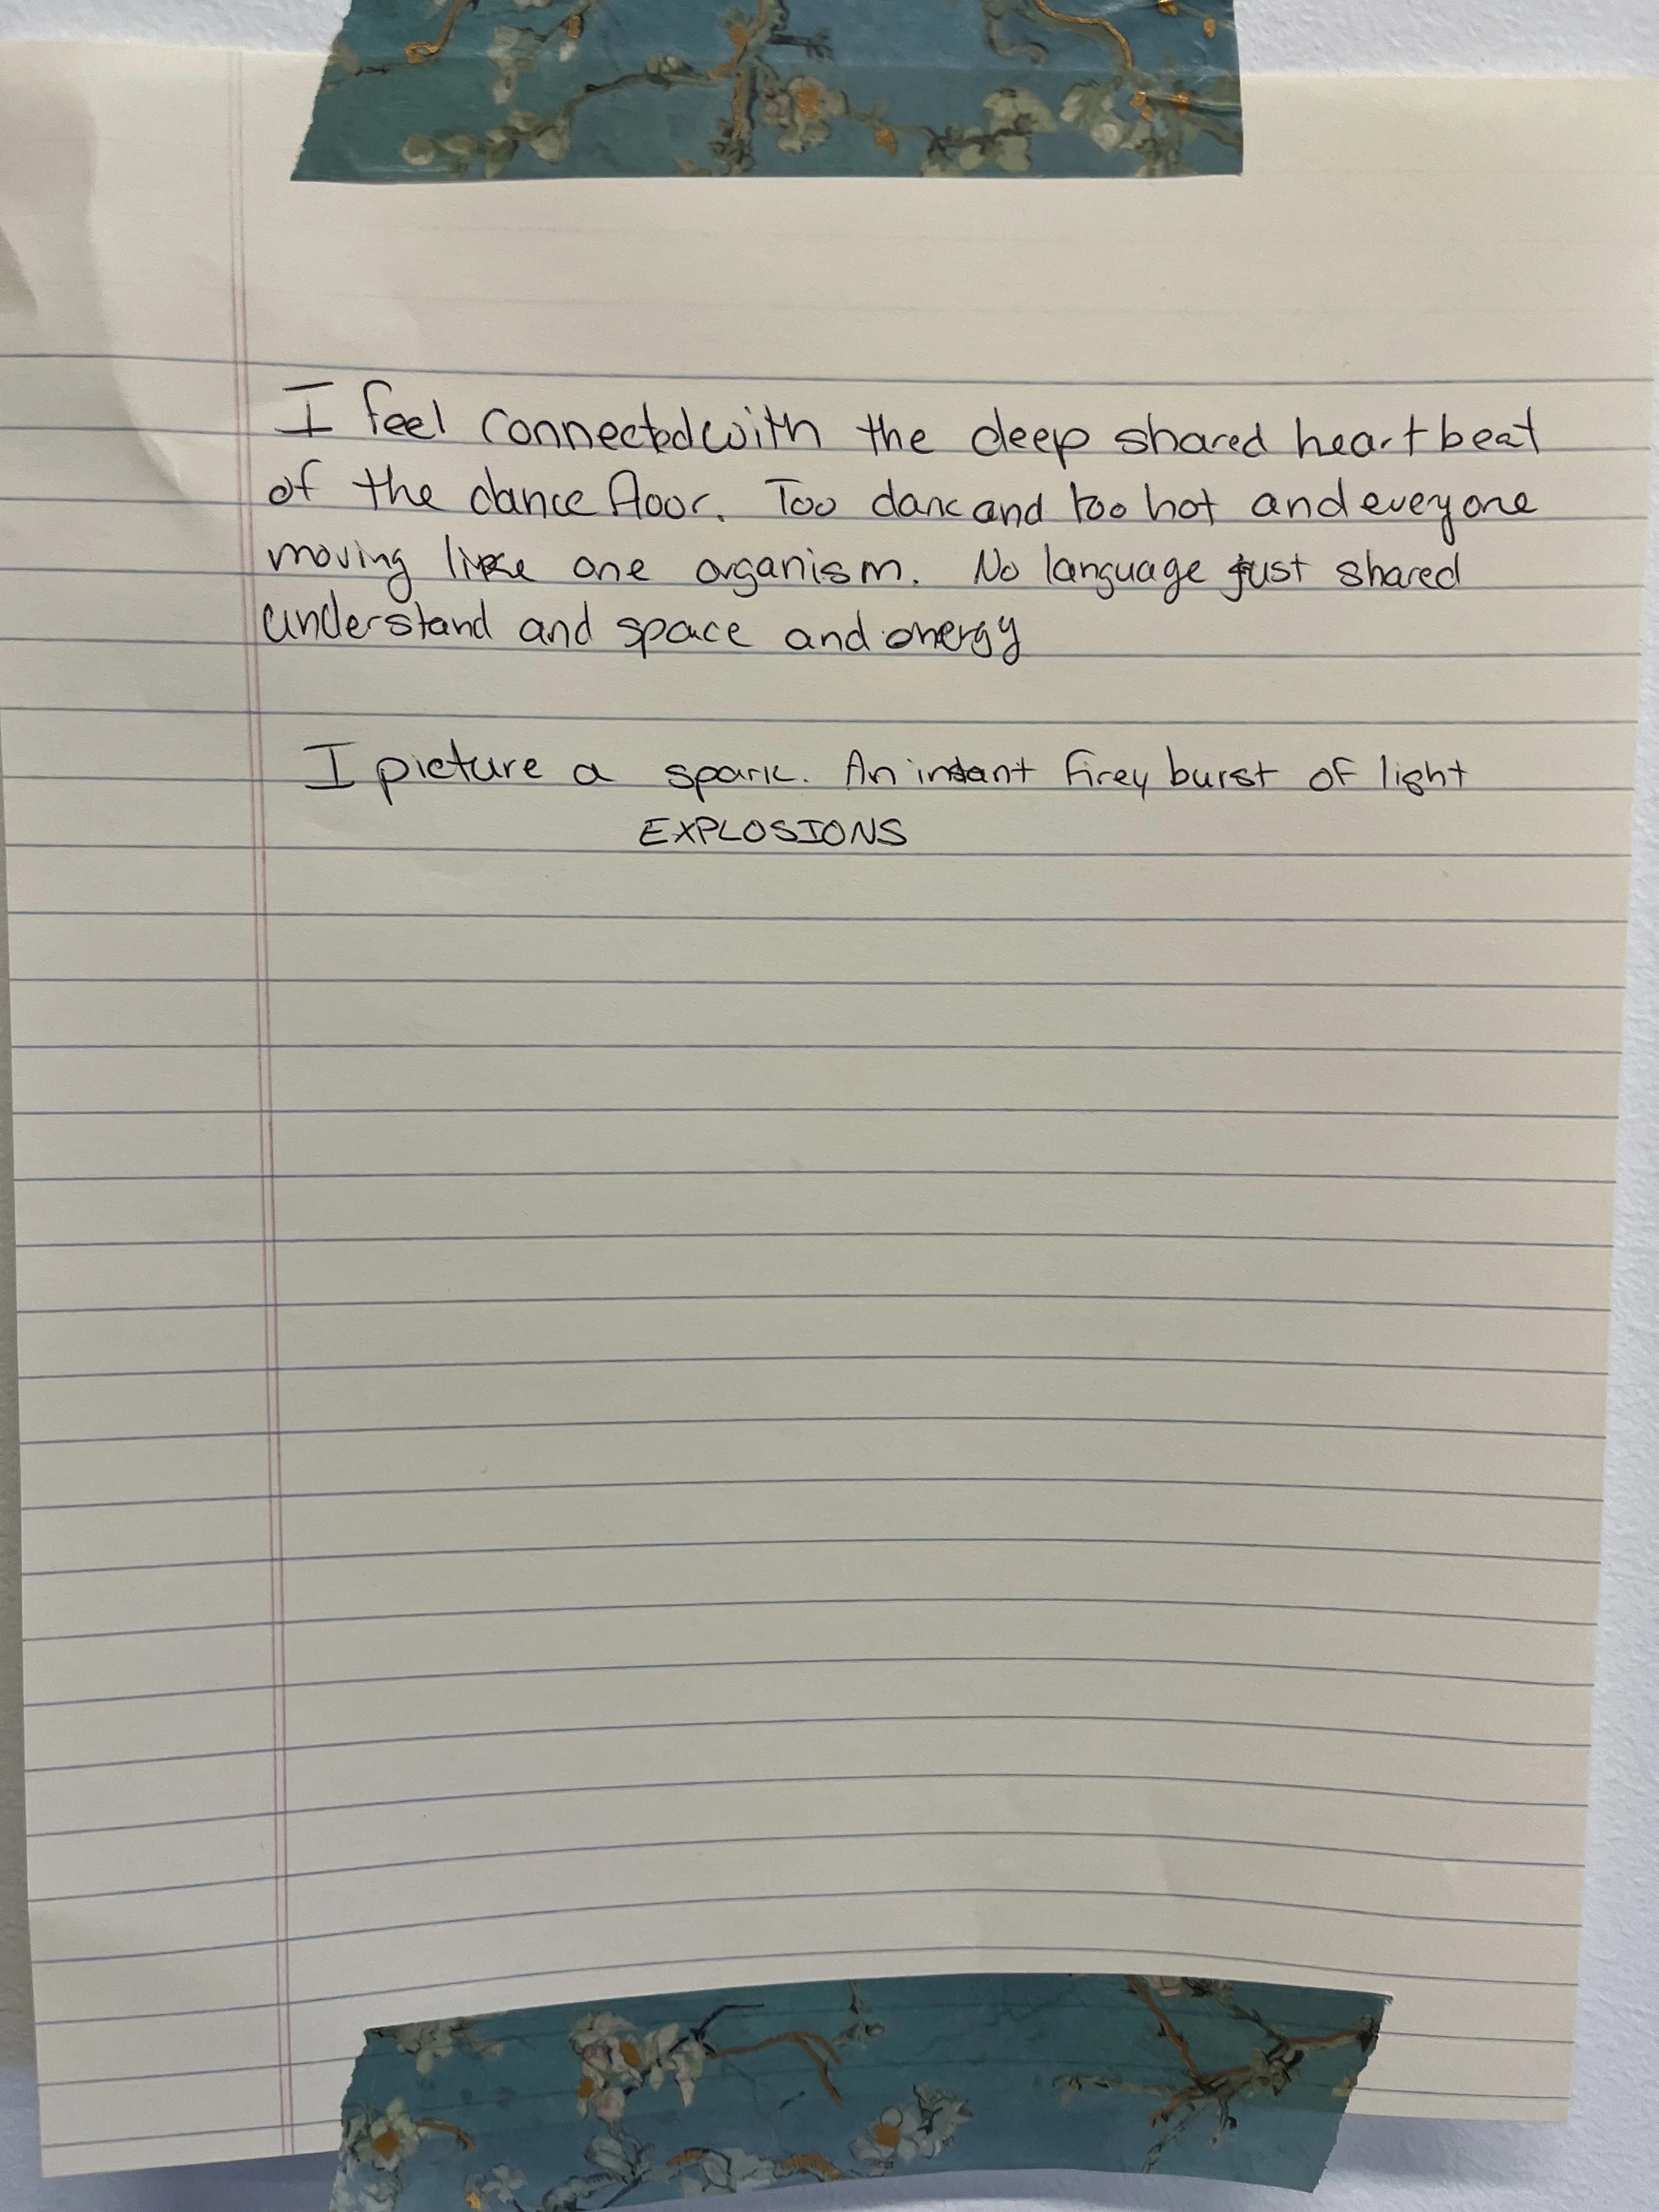 I feel connected with the deep shared heartbeat
of the dance floor. Too dark and too hot and everyone
moving like one organism. No language just shared
understand and space and energy
I picture a spark. An instant firey burst of light
EXPLOSIONS